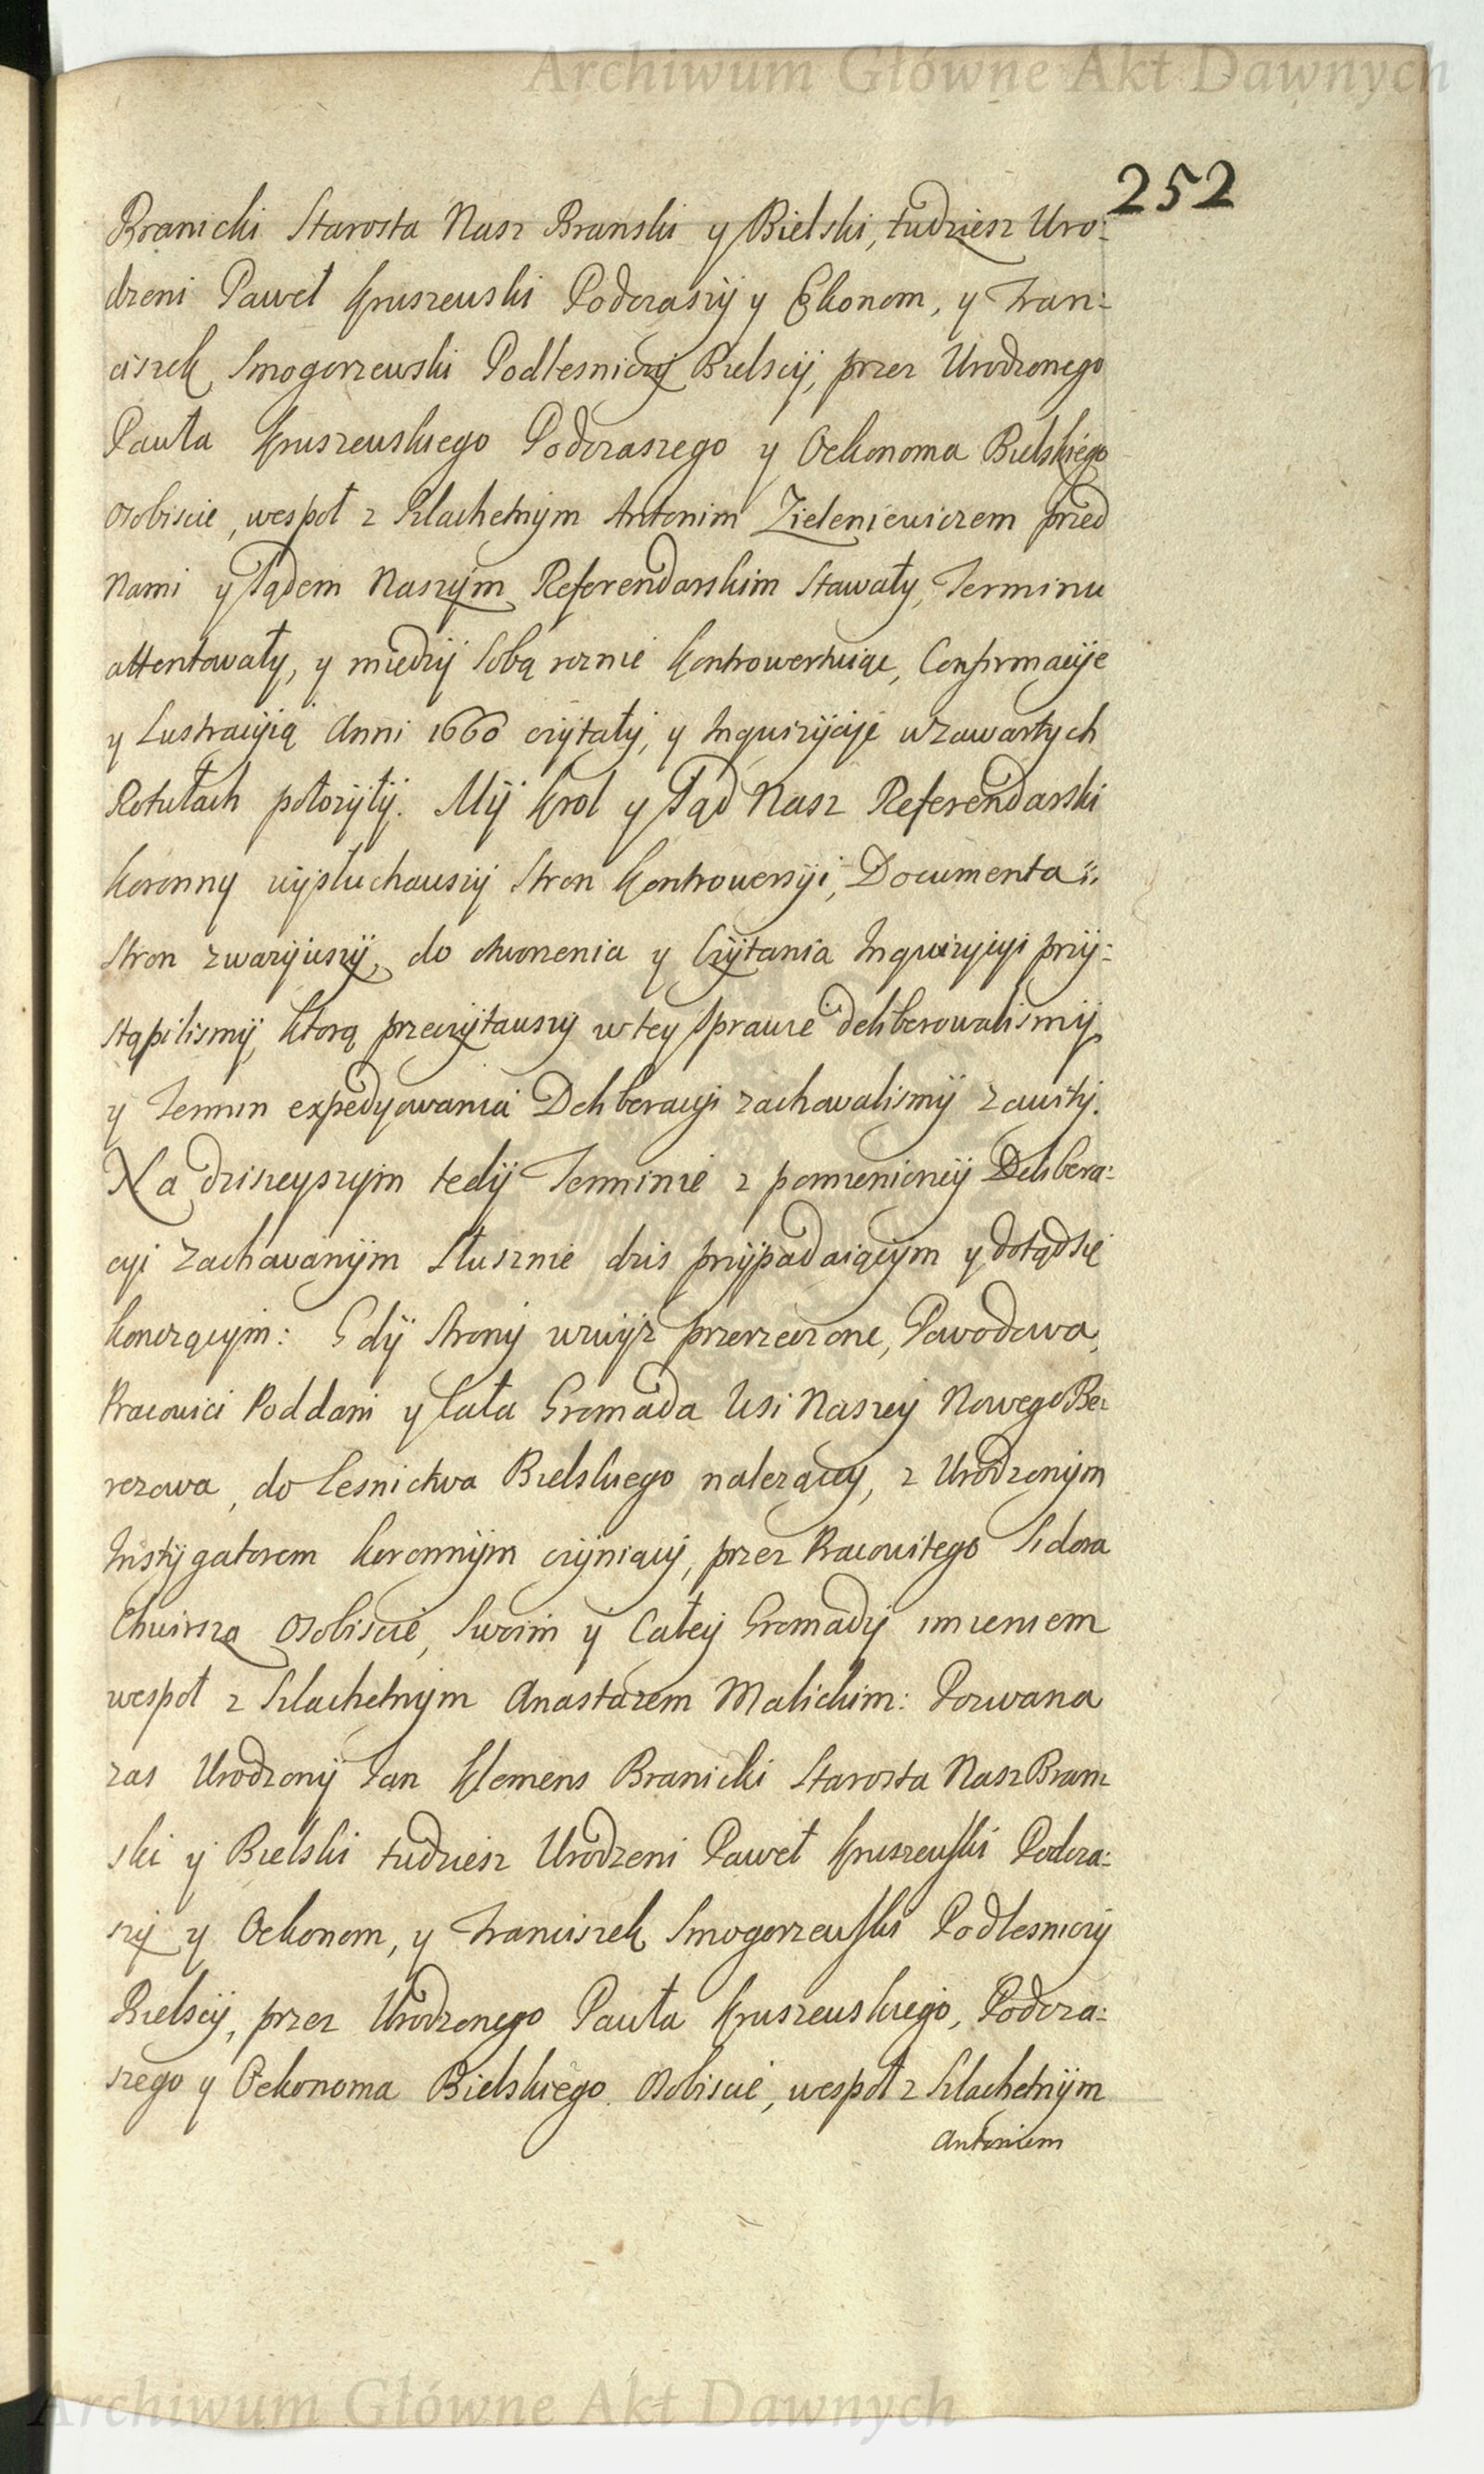 Archiwum Główne Akt Dawnych
252
Branicki Starosta Nasz Branski y Bielski, tudziesz Uro:
dzeni Paweł Kruszewski Podczaszÿ y Ekonom, y Fran:
ciszek Smogorzewski Podlesniczÿ Bielscÿ, przez Urodzonego
Pawła Kruszewskiego Podczaszego y Oekonoma Bielskiego
osobiscie, wespoł z Szlachetnÿm Antonim Zieleniewiczem przed
Nami y Sądem Naszÿm Referendarskim Stawały, Terminu
attentowały, y miedzÿ sobą roznie kontrowertuiąc, Confirmacÿe
y Lustracÿią Anni 1660 czÿtałÿ, y Inquizÿcÿe w zawartych
Rotułach połozÿłÿ. Mÿ Krol y Sąd Nasz Referendarski
Koronny wÿsłuchawszÿ Stron kontrowersÿi, Documenta
Stron zwazÿwszÿ, do otworzenia y Czÿtania Inquizycyi przÿ:
stąpilismÿ, ktorą przeczÿtawszÿ w tey sprawie deliberowalismÿ,
y Termin expedyowania Deliberacyi zachowalismÿ zawitÿ.
Na dzisieyszÿm tedÿ Terminie z pomienionÿ Delibera:
cyi zachowanÿm Słusznie dzis przÿpadaiącÿm y dotąd się
konczącÿm: Gdÿ Stronÿ wzwÿz przerzeczone, Powodowa,
Pracowici Poddani y cała Gromada Wsi Naszeÿ Nowego Be:
rezowa, do Lesnictwa Bielskiego nalezącey, z Urodzonÿm
Instÿgatorem koronnÿm czÿniącÿ, przez Pracowitego Sidora
Chwirsza Osobiscie, Swoim ÿ Całeÿ Gromadÿ imieniem
wespoł z Szlachetnÿm Anastazem Malickim: Pozwana
zas Urodzonÿ Jan Klemens Branicki Starosta Nasz Bran:
ski ÿ Bielski tudziesz Urodzeni Paweł Kruszewski Podcza:
szÿ y Oekonom, y Franciszek Smogorzewski Podlesniczÿ
Bielscÿ, przez Urodzonego Pawła Kruszewskiego, Podcza:
szego y Oekonoma Bielskiego osobiscie, wespoł z Szlachetnÿm
Antonim
Archiwum Główne Akt Dawnych